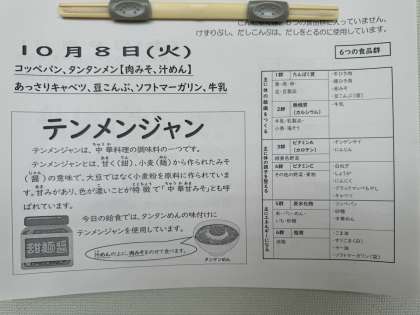 ６つの食品に入っていません。
けずりぶし、だしこんぶは、だしをとるのに使用しています。
１０月８日(火)
コッペパン、タンタンメン【肉みそ、汁めん】
あっさりキャベツ、豆こんぶ、ソフトマーガリン、牛乳
テンメンジャン
テンメンジャンは、中華料理の調味料の一つです。
テンメンジャンとは、甘く(甜)、小麦(麺)から作られたみそ
(醤)の意味で、大豆ではなく小麦粉を原料に作られていま
す。甘みがあり、色が濃いことが特徴で「中華甘みそ」とも呼
ばれています。
今日の給食では、タンタンめんの味付けに
テンメンジャンを使用しています。
甜麺醤
汁めんの上に、肉みそをのせて食べます。
タンタンめん
６つの食品群
１群 たんぱく質
２群 無機質
(カルシウム)
牛乳
３群 ビタミンA
(カロテン)
緑黄色野菜
４群 ビタミンC
その他の野菜・果物
にんにく
キャベツ
５群 炭水化物
コッペパン
砂糖
６群 脂質
ごま油
ソフトマーガリン